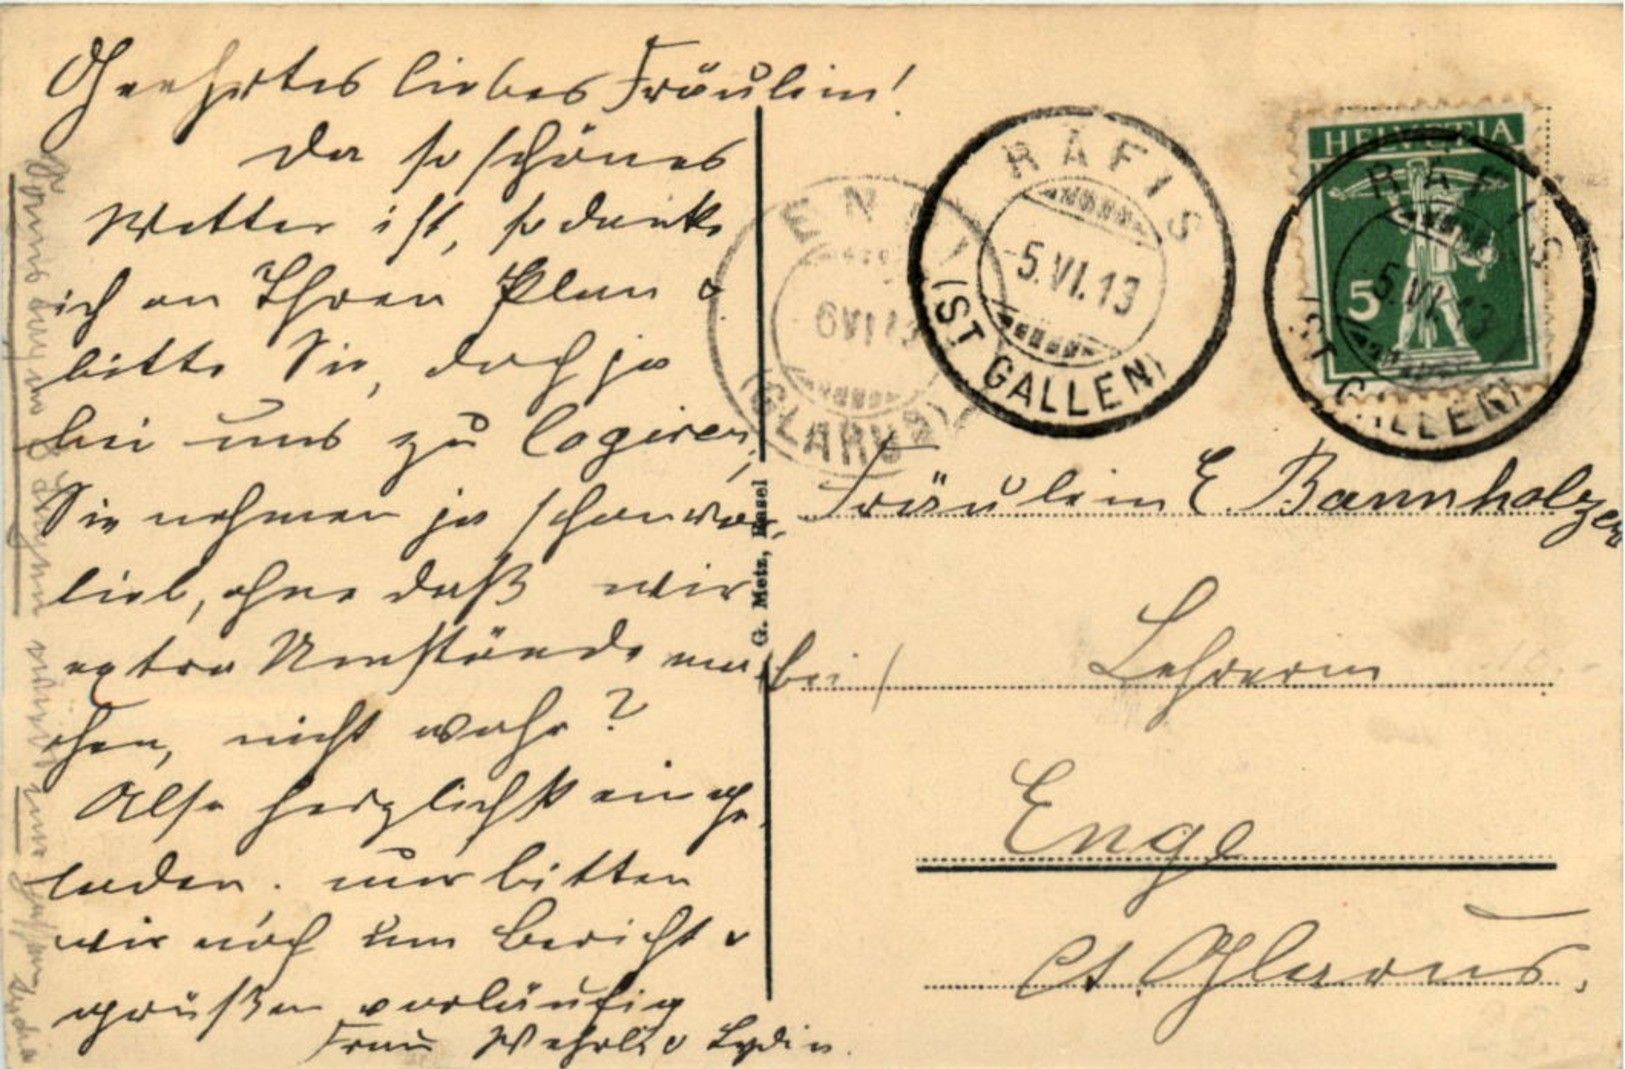 Geehrtes liebes Fräulein!
Da so schönes
Wetter ist, so denke
ich an Ihren Plan &
bitte Sie, doch ja
bei uns zu logieren,
Sie nehmen ja schon vor-
lieb, ohne daß wir
extra Umstände ma-
chen, nicht wahr?
Also herzlichst einge-
laden. nur bitten
wir noch um Bericht &
grüßen vorläufig
Frau Wehrli & Lydia.
G. Metz, Basel
ENGI
6 VI 13
(GLARUS)
RÄFIS
-5.VI.13
(ST GALLEN)
HELVETIA
5
RÄFIS
-5.VI.13
(ST GALLEN)
Fräulein E. Bannholzer
bei / Lehrerin
Enge
Ct. Glarus.